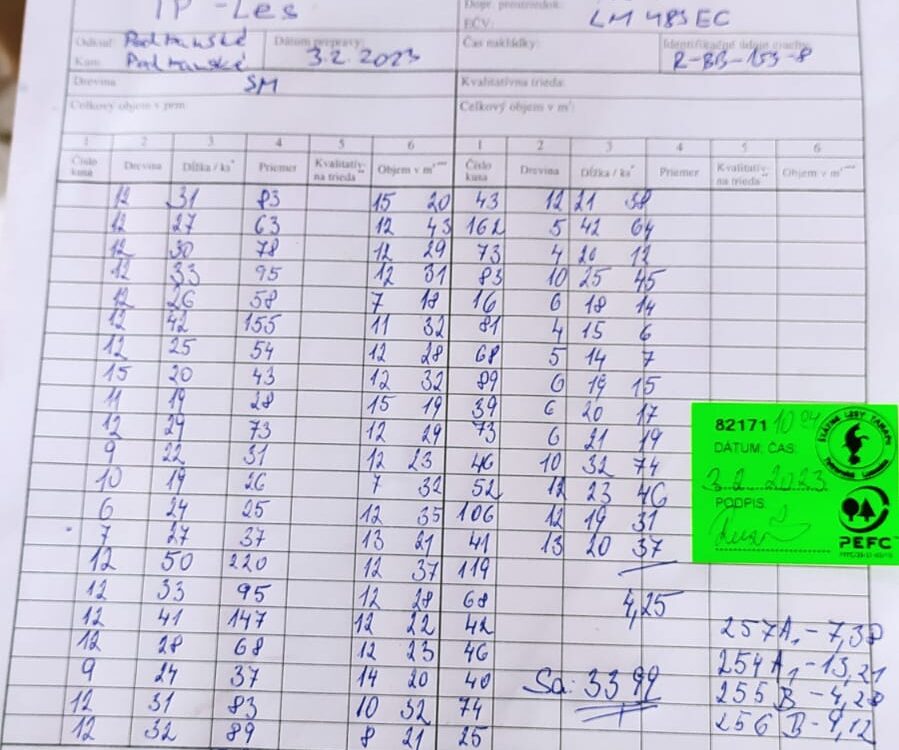 TP - Les
Dopr. prostriedok:
EČV: LM 485EC
Odkiaľ: Podtanské Dátum prepravy: 3.2.2023 Čas nakládky: Identifikačné údaje značky
Kam: Podtanské R-BB-153-8
Drevina SM Kvalitatívna trieda:
Celkový objem v prm: Celkový objem v m³:
1 2 3 4 5 6 1 2 3 4 5 6
Číslo kusa Drevina Dĺžka / ks* Priemer Kvalitatív- na trieda** Objem v m³*** Číslo kusa Drevina Dĺžka / ks* Priemer Kvalitatív- na trieda** Objem v m³***
12 31 83 15 20 43 12 21 38
12 27 63 12 43 162 5 42 64
12 30 78 12 29 73 4 20 12
12 33 95 12 31 83 10 25 45
12 26 58 7 18 16 6 18 14
12 42 155 11 32 81 4 15 6
12 25 54 12 28 68 5 14 7
15 20 43 12 32 89 6 19 15
11 19 28 15 19 39 6 20 17
12 29 73 12 29 73 6 21 19
9 22 31 12 23 46 10 32 74
10 19 26 7 32 52 12 23 46
6 24 25 12 35 106 12 19 31
7 27 37 13 21 41 13 20 37
12 50 220 12 37 119
12 33 95 12 28 68 4,25
12 41 147 12 22 42 257A, - 7,38
12 28 68 12 23 46 254A, - 13,21
9 24 37 14 20 40 Sa: 33 99 255 B - 4,28
12 31 83 10 32 74 256 B - 9,12
12 32 89 8 21 25
82171 10 04
DÁTUM, ČAS:
3.2.2023
PODPIS
ŠTÁTNE LESY TANAPU
PEFC